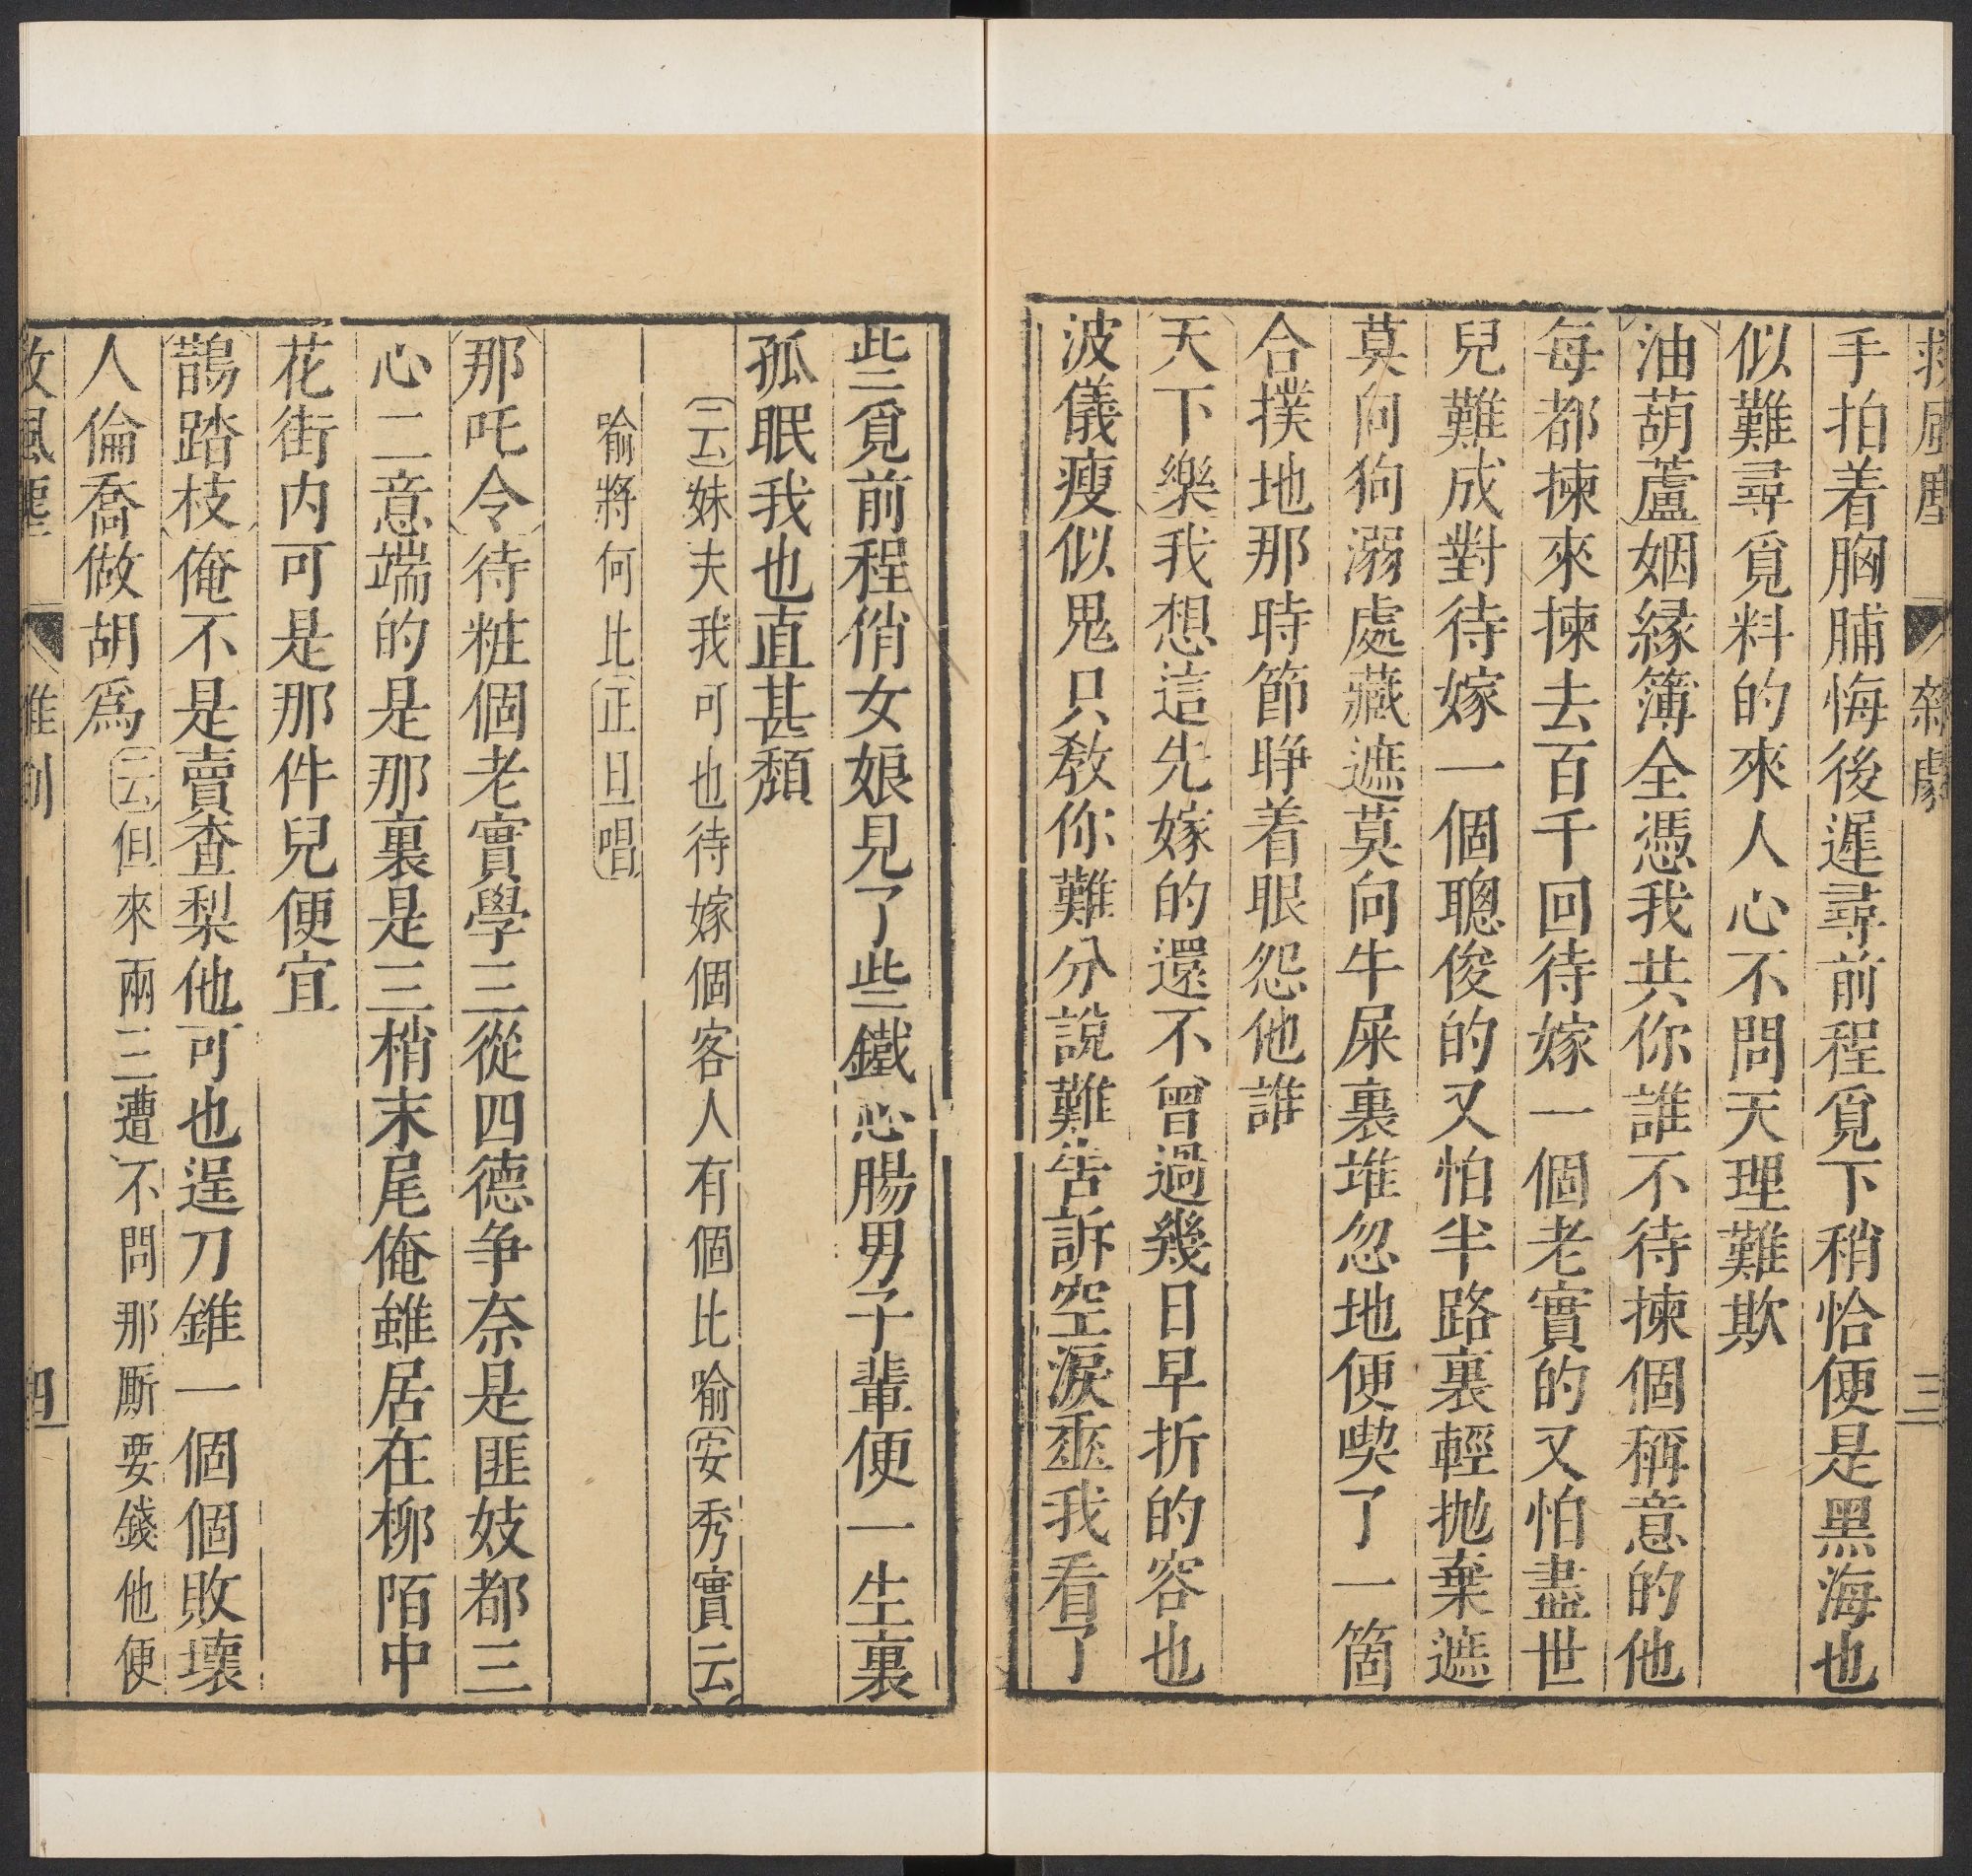 救風塵 雜劇 三
手拍着胸脯悔後遲尋前程覓下稍恰便是黑海也
似難尋覓料的來人心不問天理難欺
油葫蘆姻緣簿全憑我共你誰不待揀個稱意的他
每都揀來揀去百千回待嫁一個老實的又怕盡世
兒難成對待嫁一個聰俊的又怕半路裏輕拋棄遮
莫向狗溺處藏遮莫向牛屎裏堆忽地便喫了一箇
合撲地那時節睁着眼怨他誰
天下樂我想這先嫁的還不曾過幾日早折的容也
波儀瘦似鬼只敎你難分說難告訴空淚垂我看了
些覓前程俏女娘見了些鐵心腸男子輩便一生裏
孤眠我也直甚頹
云妹夫我可也待嫁個客人有個比喻安秀實云
喻將何比正旦唱
那吒令待粧個老實學三從四德争奈是匪妓都三
心二意端的是那裏是三梢末尾俺雖居在柳陌中
花街内可是那件兒便宜
鵲踏枝俺不是賣查梨他可也逞刀錐一個個敗壞
人倫喬做胡爲云但來兩三遭不問那厮要錢他便
救風塵 雜劇 四